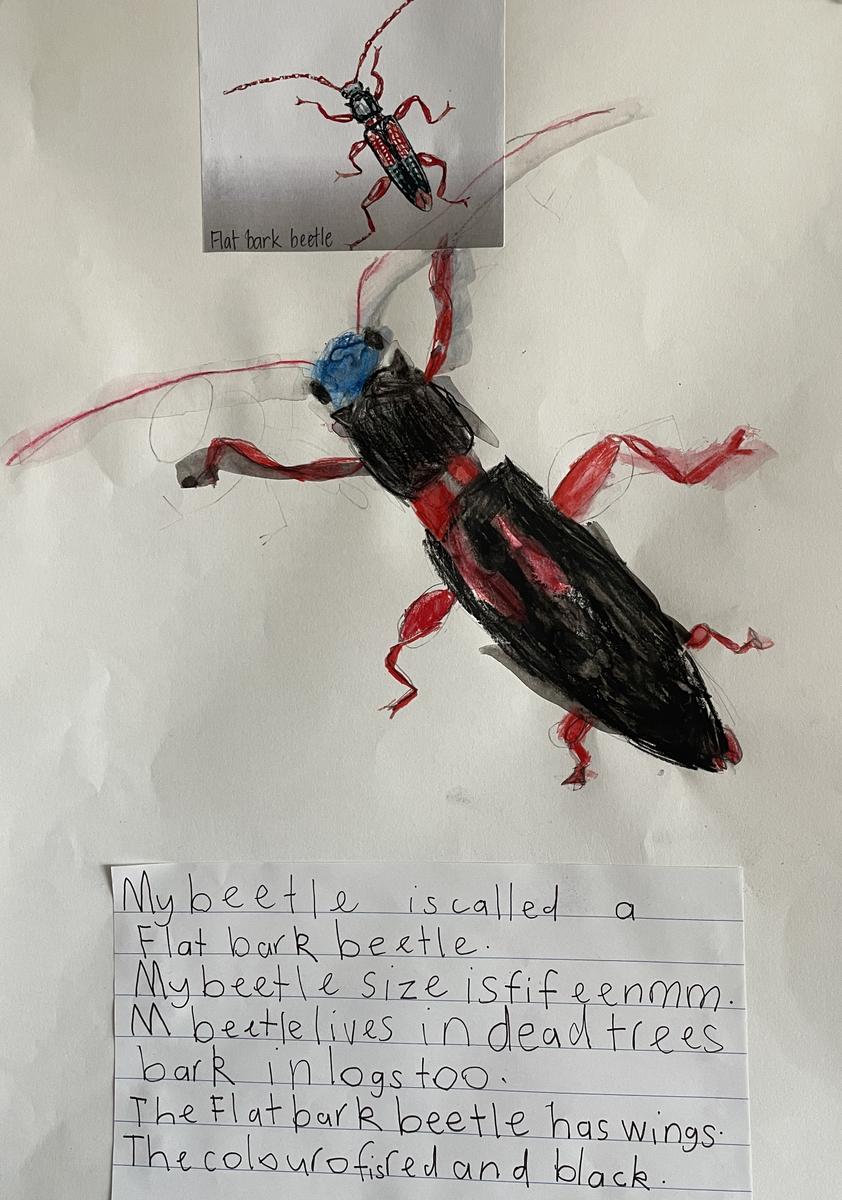 Flat bark beetle
My beetle is called a
Flat bark beetle.
My beetle size is fif eenmm.
M beetle lives in dead trees
bark in logs too.
The Flat bark beetle has wings.
The colour of is red and black.